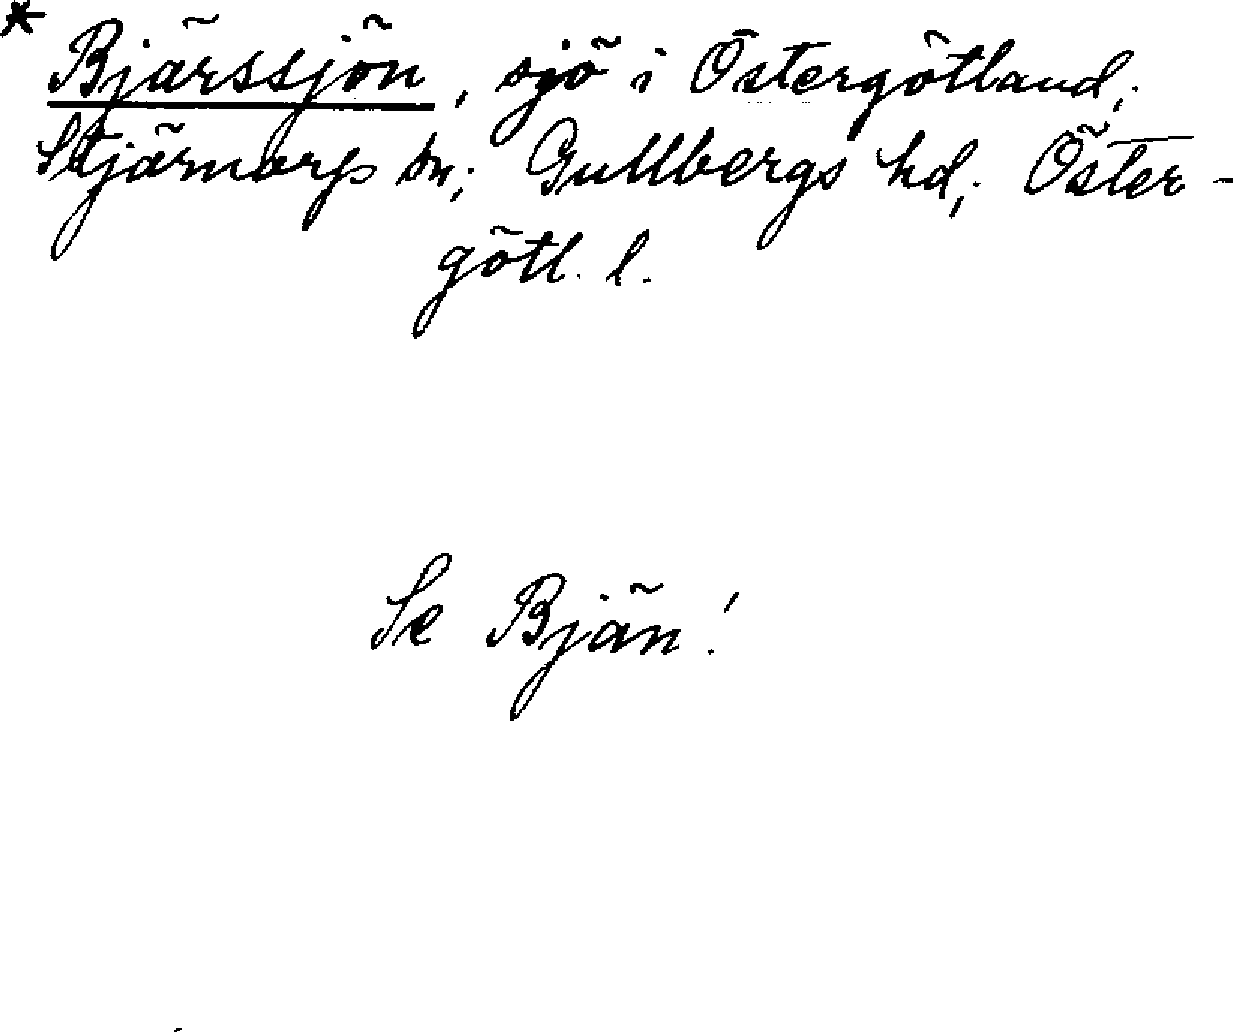 * Bjärssjön, sjö i Östergötland;
Stjärnorps sn; Gullbergs hd; Öster-
götl. l.
Se Bjän!